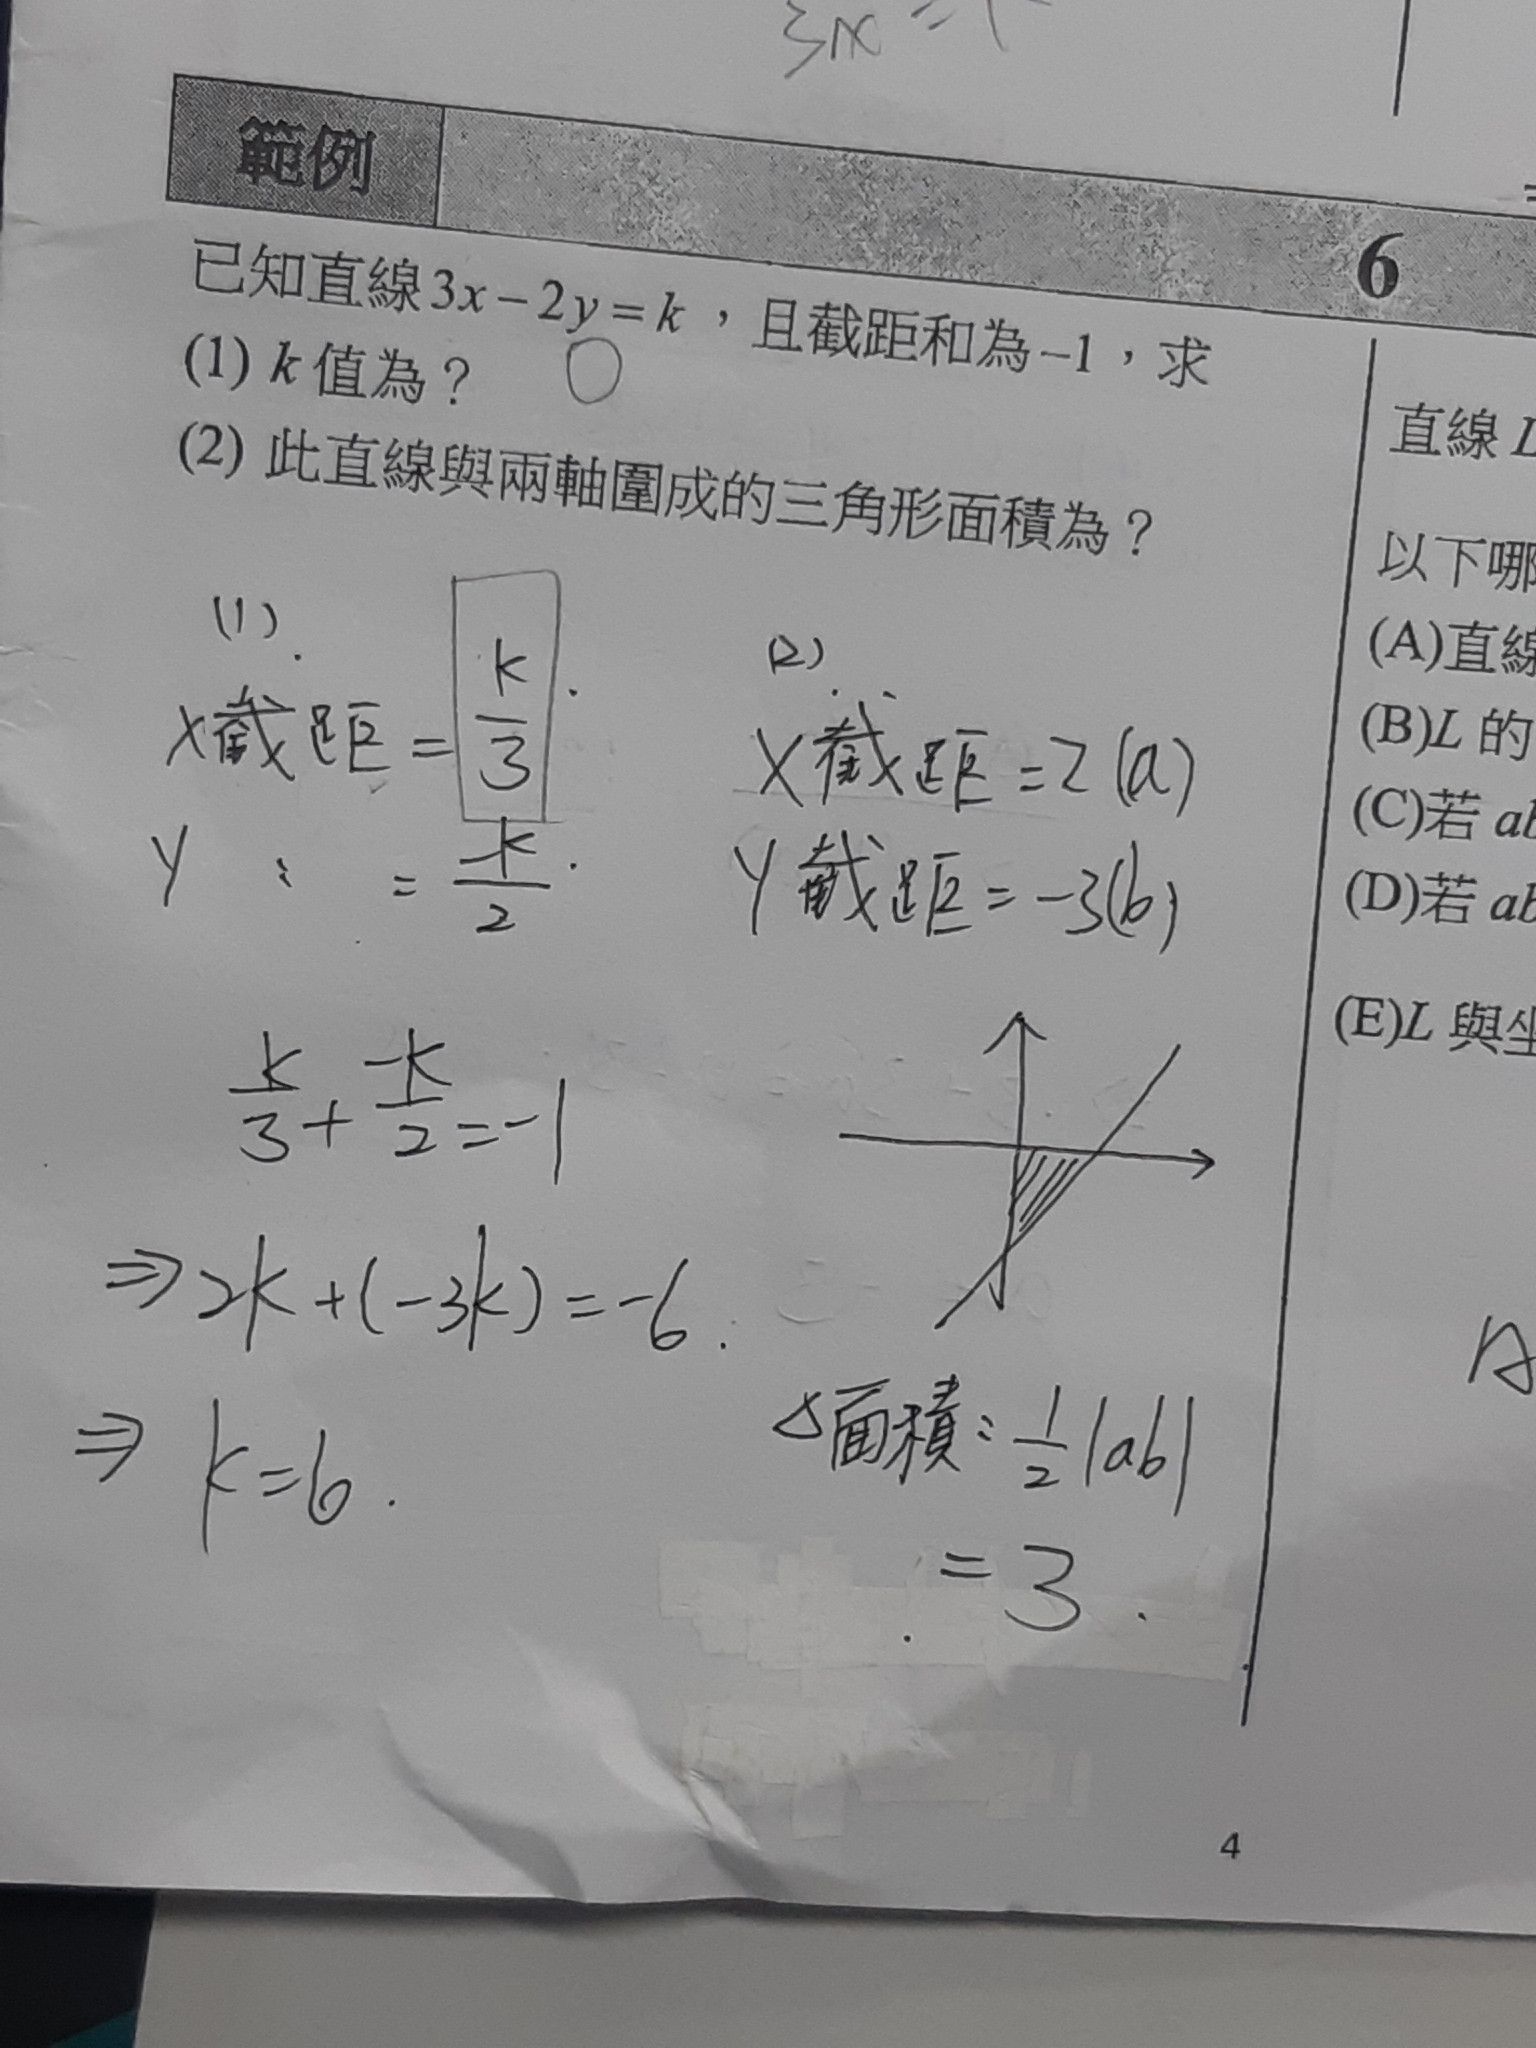 3x
範例 6
已知直線3x－2y＝k，且截距和為－1，求
(1) k 值為？
(2) 此直線與兩軸圍成的三角形面積為？
(1).
x截距 = k/3.
y : = -k/2.
k/3 + -k/2 = -1
⇒ 2k + (-3k) = -6.
⇒ k = 6.
(2).
x截距 = 2 (a)
y截距 = -3(b)
△面積: 1/2 |ab|
= 3.
直線 L
以下哪
(A)直線
(B)L 的
(C)若 ab
(D)若 ab
(E)L 與坐
4